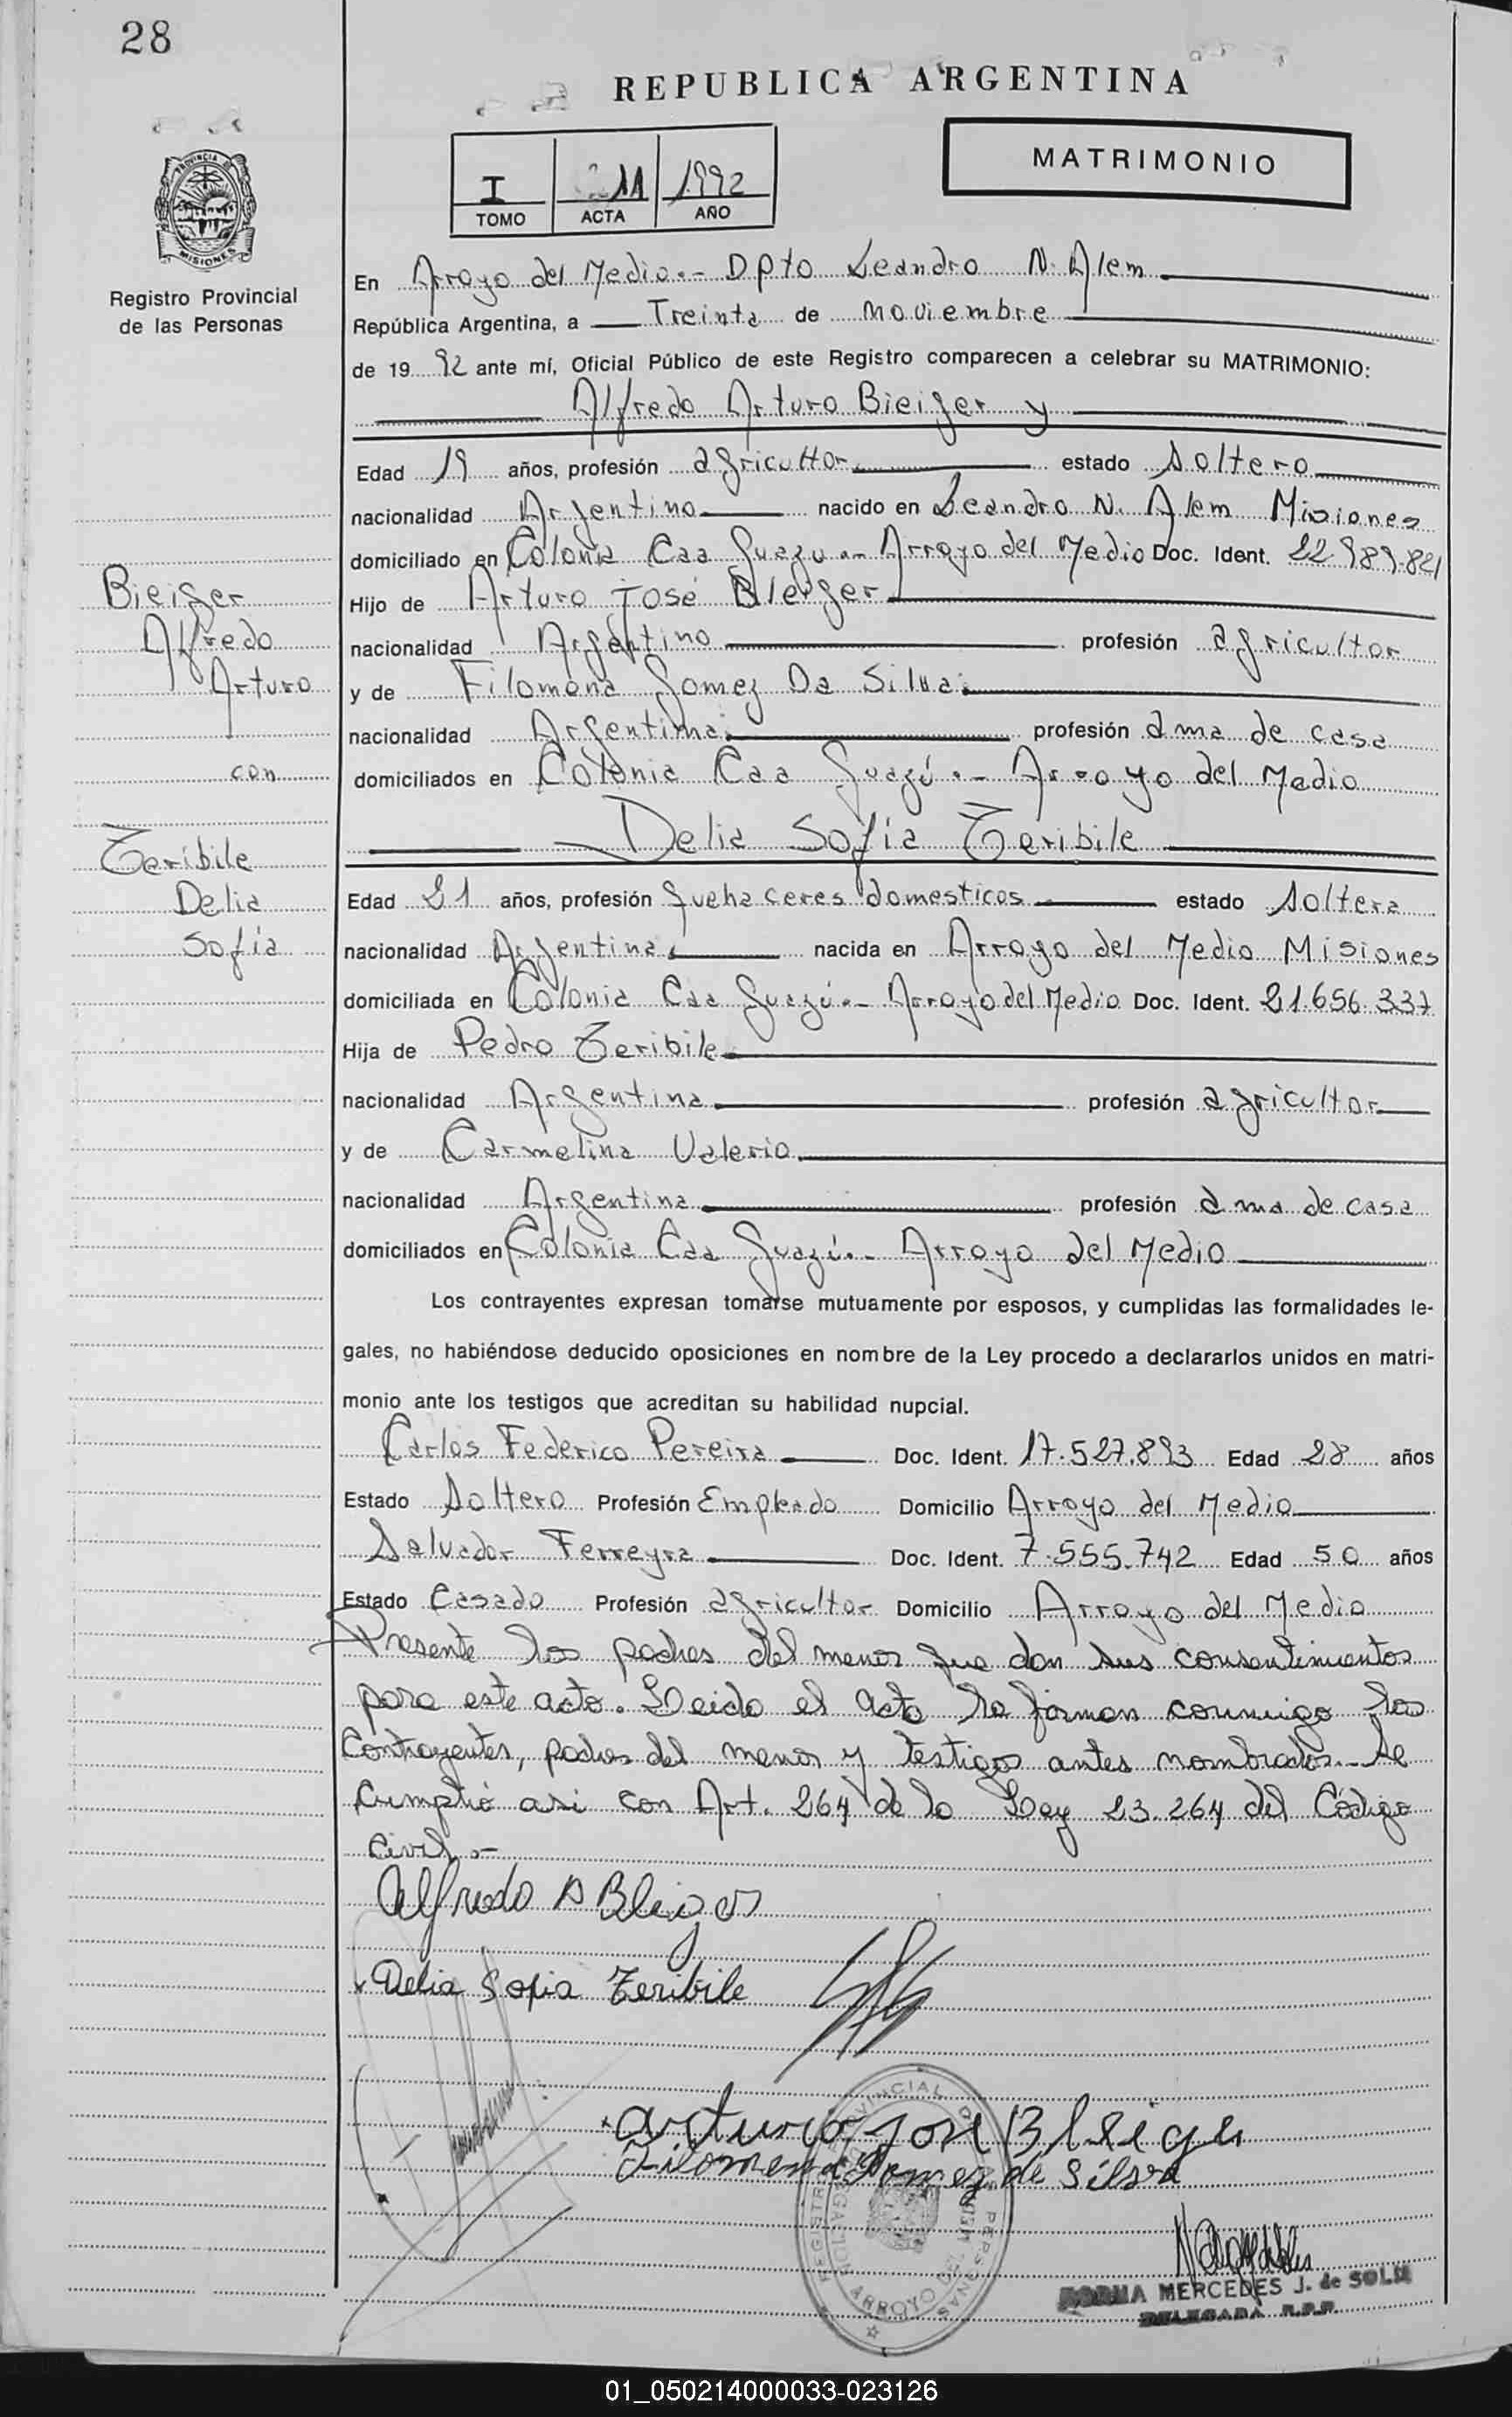 28
REPUBLICA ARGENTINA
MATRIMONIO
I 211 1992
TOMO ACTA AÑO
PROVINCIA D
MISIONES
Registro Provincial
de las Personas
En Arroyo del Medio.- Dpto Leandro N. Alem
República Argentina, a Treinta de noviembre
de 19 92 ante mí, Oficial Público de este Registro comparecen a celebrar su MATRIMONIO:
Alfredo Arturo Bieiger y
Edad 19 años, profesión agricultor estado Soltero
nacionalidad Argentino nacido en Leandro N. Alem Misiones
domiciliado en Colonia Caa Guazu.- Arroyo del Medio Doc. Ident. 22.989.821
Hijo de Arturo José Bleiger
nacionalidad Argentino profesión agricultor
y de Filomena Gomez Da Silva.
nacionalidad Argentina. profesión ama de casa
domiciliados en Colonia Caa Guazú.- Arroyo del Medio
Bieiger
Alfredo
Arturo
con
Teribile
Delia
Sofía
Delia Sofía Teribile
Edad 21 años, profesión quehaceres domesticos estado Soltera
nacionalidad Argentina nacida en Arroyo del Medio Misiones
domiciliada en Colonia Caa Guazú.- Arroyo del Medio Doc. Ident. 21.656.337
Hija de Pedro Teribile
nacionalidad Argentina profesión agricultor
y de Carmelina Valerio.
nacionalidad Argentina profesión ama de casa
domiciliados en Colonia Caa Guazú.- Arroyo del Medio
Los contrayentes expresan tomarse mutuamente por esposos, y cumplidas las formalidades le-
gales, no habiéndose deducido oposiciones en nombre de la Ley procedo a declararlos unidos en matri-
monio ante los testigos que acreditan su habilidad nupcial.
Carlos Federico Pereira Doc. Ident. 17.527.893 Edad 28 años
Estado Soltero Profesión Empleado Domicilio Arroyo del Medio
Salvador Ferreyra Doc. Ident. 7.555.742 Edad 50 años
Estado Casado Profesión agricultor Domicilio Arroyo del Medio
Presente los padres del menor que dan sus consentimientos
para este acto. Leida el acta la firman conmigo los
Contrayentes, padres del menor y testigos antes nombrados.- Se
Cumplió asi con Art. 264 de la Ley 23.264 del Código
Civil.-
Alfredo A Bleiger
x Delia Sofia Teribile
x Arturo José Bleiger
Filomena Gomez de Silva
NORMA MERCEDES J. de SOLIS
DELEGADA R.P.P.
01_050214000033-023126